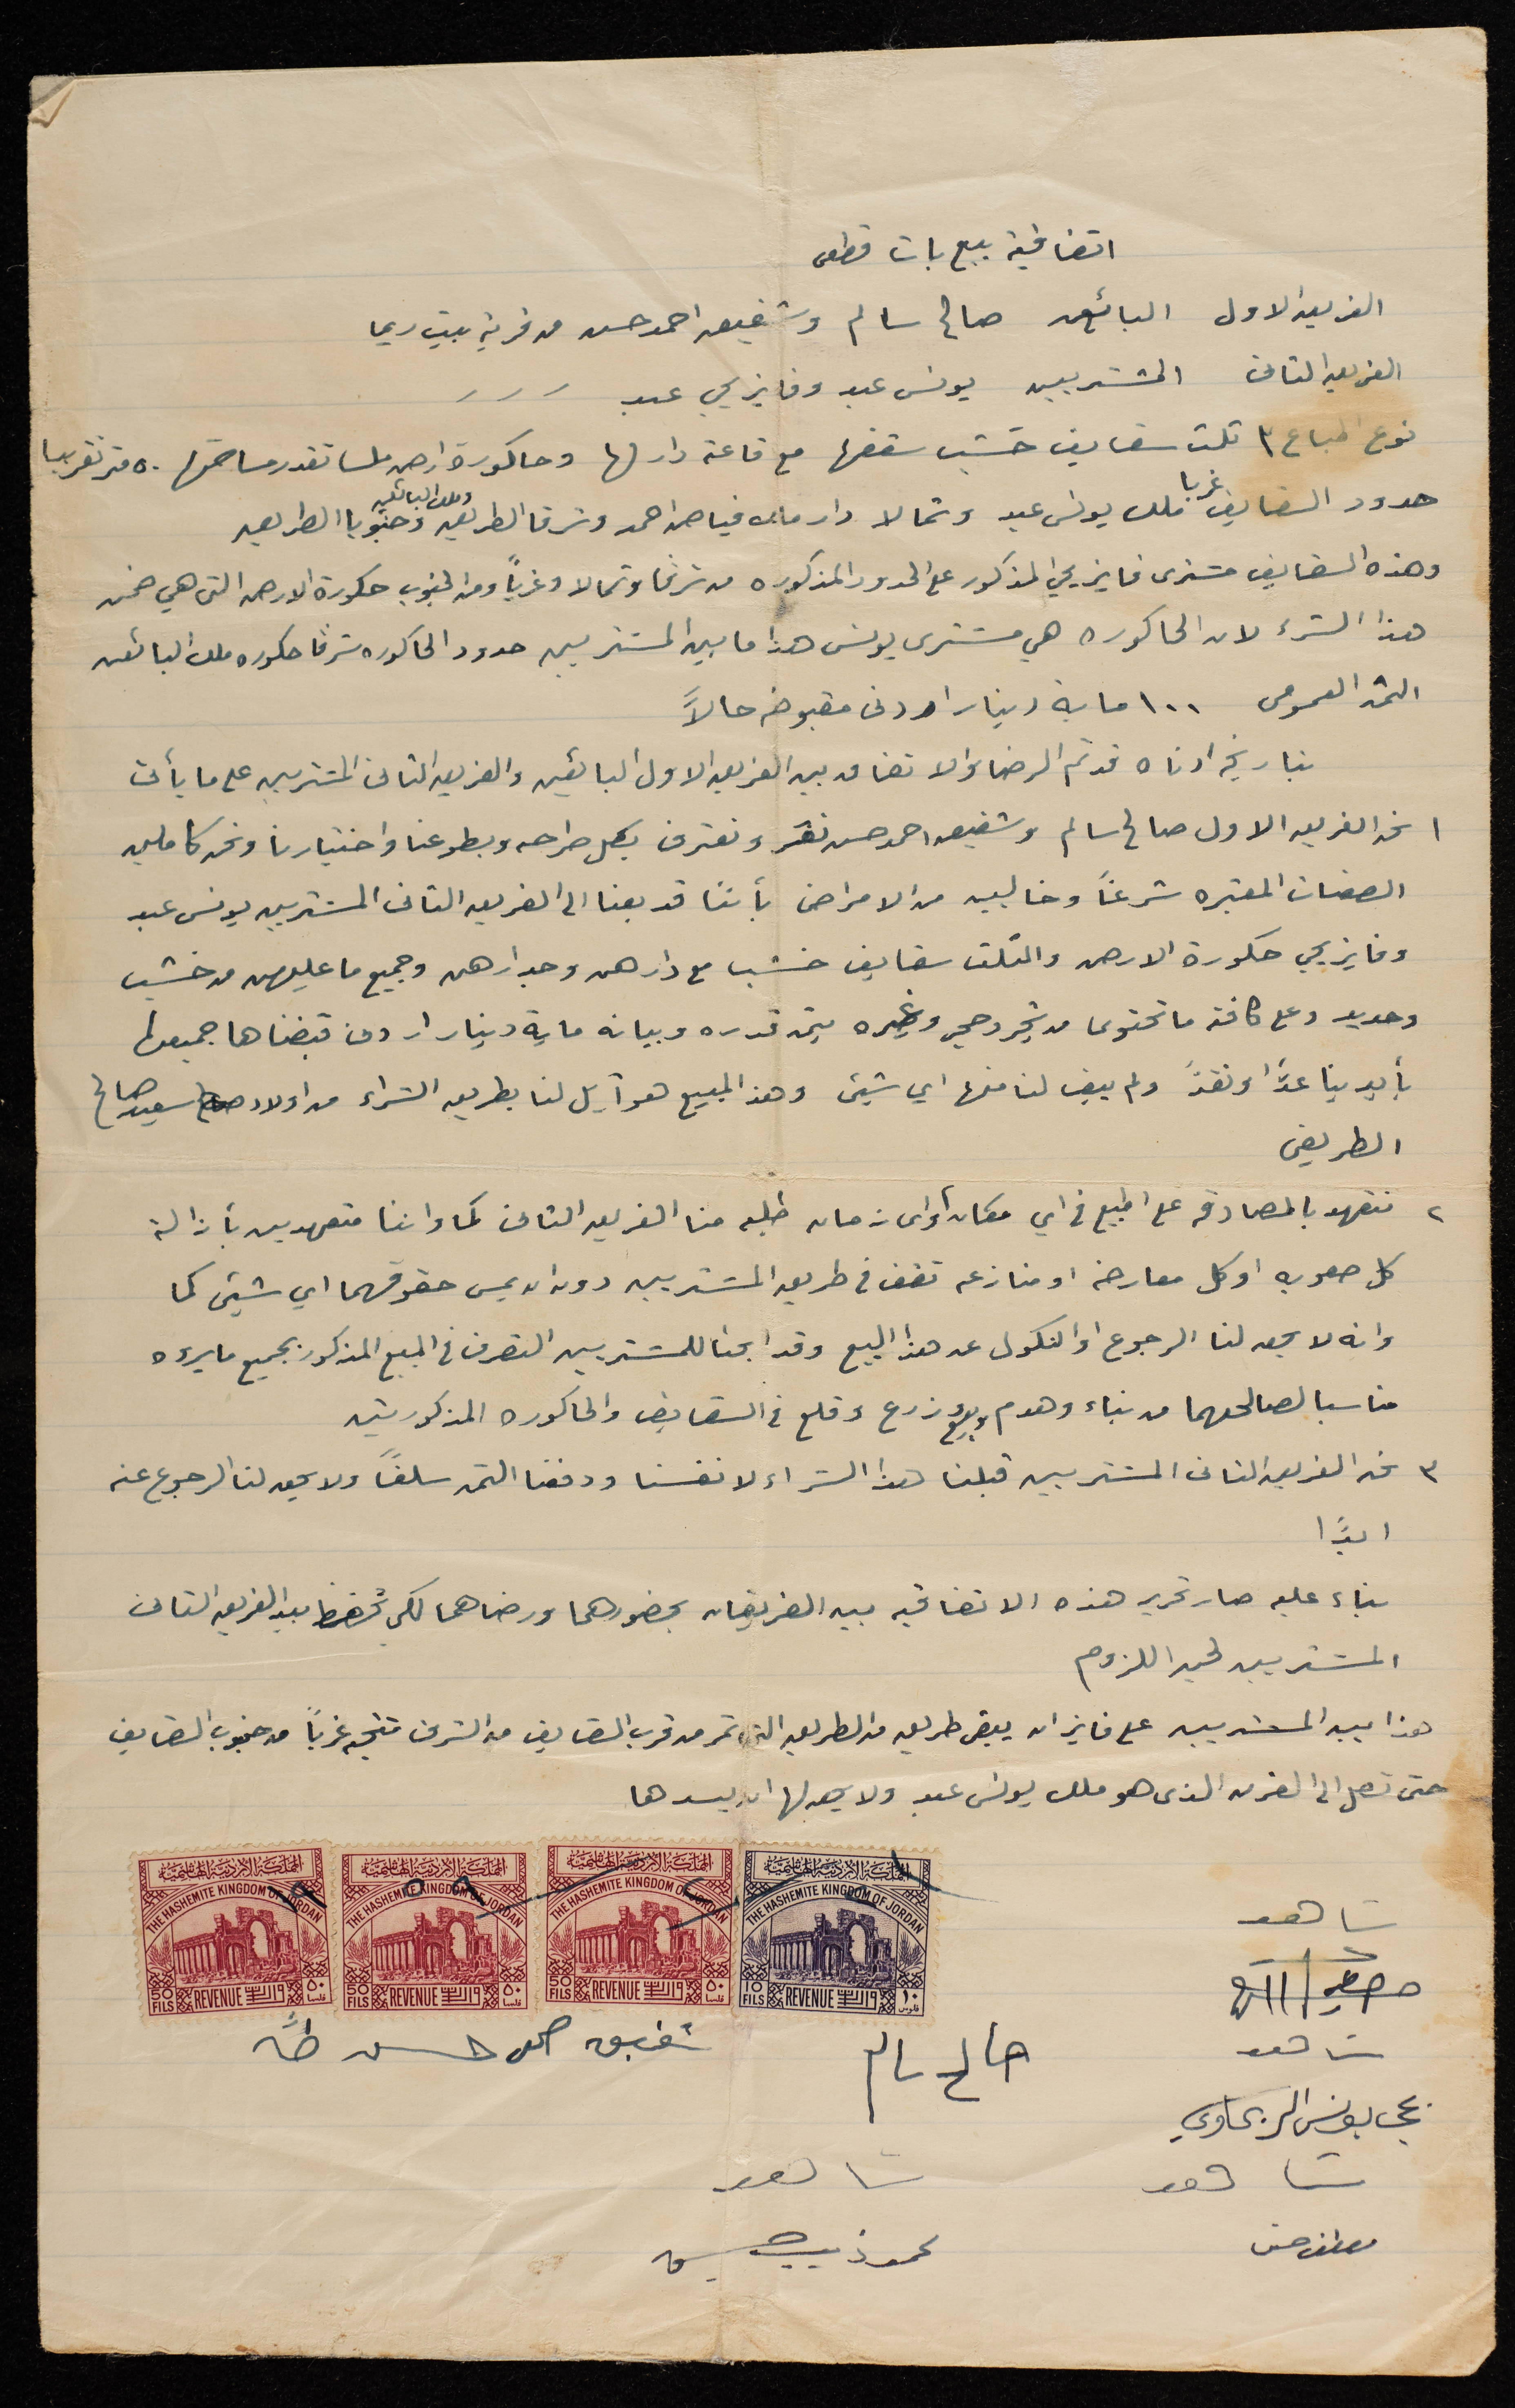 اتفاقية بيع بات قطعي
الفريق الاول البائعين صالح سالم وشفيق احمد حسن من قرية بيت ريما
الفريق الثاني المشتريين يونس عبد وفايز يحي عبد
نوع المباع ٣ ثلث سقايف خشب سقفها مع قاعة دار لها وحاكورة ارض ملسا تقدر مساحتها ٥٠ متر تقريبا
حدود السقايف غربا ملك يونس عبد وشمالا دار ملك فياض احمد وشرقا الطريق وملك البائعين وجنوبا الطريق
وهذه السقايف مشترى فايز يحي المذكور على الحدود المذكوره من شرقا وشمالا وغرباً ومن الجنوب حكورة الارض التي هي ضمن
هذا الشراء لان الحاكوره هي مشترى يونس هذا ما بين المشتريين حدود الحاكوره شرقا حكوره ملك البائعين
الثمن العمومي ١٠٠ ماية دينار اردني مقبوضه حالاً
بتاريخه ادناه قد تم الرضا والاتفاق بين الفريق الاول البائعين والفريق الثاني المشتريين على ما يأتي
١ نحن الفريق الاول صالح سالم وشفيق احمد حسن نقر ونعترف بكل صراحه وبطوعنا واختيارنا ونحن كاملين
الصفات المعتبره شرعاً وخاليين من الامراض بأننا قد بعنا الى الفريق الثاني المشتريين يونس عبد
وفايز يحي حكورة الارض والثلث سقايف خشب مع دارهن وجدارهن وجميع ما عليهن من خشب
وحديد وعلى كافة ما تحتويا من شجر وحجر وغيره بثمن قدره وبيانه ماية دينار اردني قبضناها جميعها
بأيدينا عدًا ونقدً ولم يبق لنا منها اي شيئ وهذا المبيع هو آيل لنا بطريق الشراء من اولاد سعيد صالح
الطريفي
٢ نتعهد بالمصادقه على المبيع في اي مكان او اي زمان طلبه منا الفريق الثاني كما واننا متعهدين بأزالة
كل صعوبه او كل معارضه او منازعه تقف في طريق المشتريين دون ان يمس حقوقهما اي شيئ كما
وانه لا يحق لنا الرجوع او النكول عن هذا البيع وقد ابحنا للمشتريين التصرف في المبيع المذكور بجميع ما يروه
مناسبا لصالحهما من بناء وهدم وبيع وزرع وقلع في السقايف والحاكوره المذكورتين
٣ نحن الفريق الثاني المشتريين قبلنا هذا الشراء لانفسنا ودفعنا الثمن سلفاً ولا يحق لنا الرجوع عنه
ابدًا
بناء عليه صار تحرير هذه الاتفاقيه بين الفريقان بحضورهما ورضاهما لكي تحفظ بيد الفريق الثاني
المشتريين لحين اللزوم
هذا بين المشتريين على فايز ان يعطي طريق من الطريق التي تمر من قرب السقايف من الشرق متجه غرباً من جنوب السقايف
حتى تصل الى الفرن الذي هو ملك يونس عبد ولا يحق لها ان يسدها
المملكة الاردنية الهاشمية
THE HASHEMITE KINGDOM OF JORDAN
50 FILS REVENUE ٥٠ فلسا
المملكة الاردنية الهاشمية
THE HASHEMITE KINGDOM OF JORDAN
50 FILS REVENUE ٥٠ فلسا
المملكة الاردنية الهاشمية
THE HASHEMITE KINGDOM OF JORDAN
50 FILS REVENUE ٥٠ فلسا
المملكة الاردنية الهاشمية
THE HASHEMITE KINGDOM OF JORDAN
10 FILS REVENUE ١٠ فلوس
شاهد
شاهد
يونس الريماوي
صالح سالم
شفيق احمد حسن
شاهد
شاهد
محمود ذيب حسين